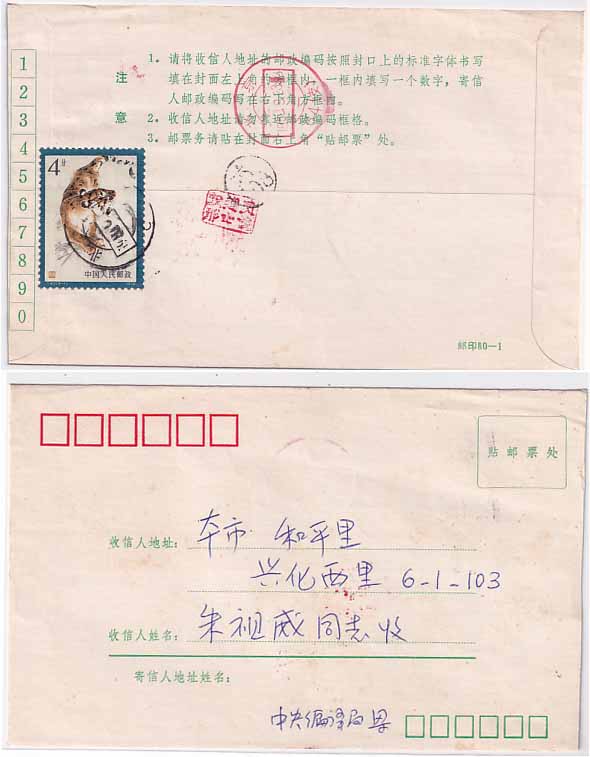 1. 请将收信人地址的邮政编码按照封口上的标准字体书写
填在封面左上角的框内，一框内填写一个数字，寄信
人邮政编码写在右下角方框内。
注
意
2. 收信人地址请勿靠近邮政编码框格。
3. 邮票务请贴在封面右上角“贴邮票”处。
1
2
3
4
5
6
7
8
9
0
4分
中国人民邮政
邮印80—1
贴邮票处
收信人地址：本市 和平里
兴化西里 6-1-103
收信人姓名：朱祖威同志收
寄信人地址姓名：
中央编译局